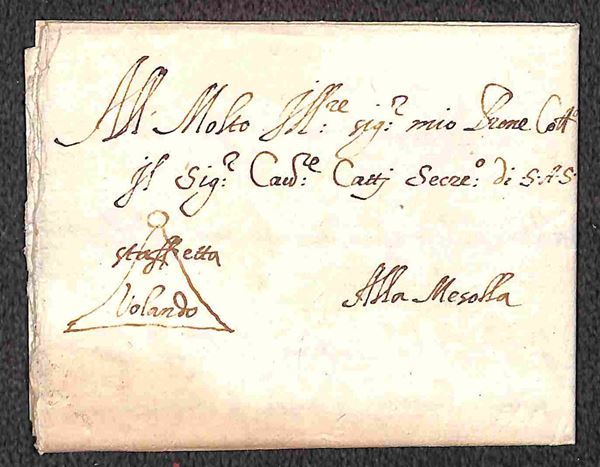 All Molto Ill:re sig:r mio Prone Coll:o
Il Sig:r Cau:re Cattj Secre:o di S:A:S:
staffetta
Volando
Alla Mesolla